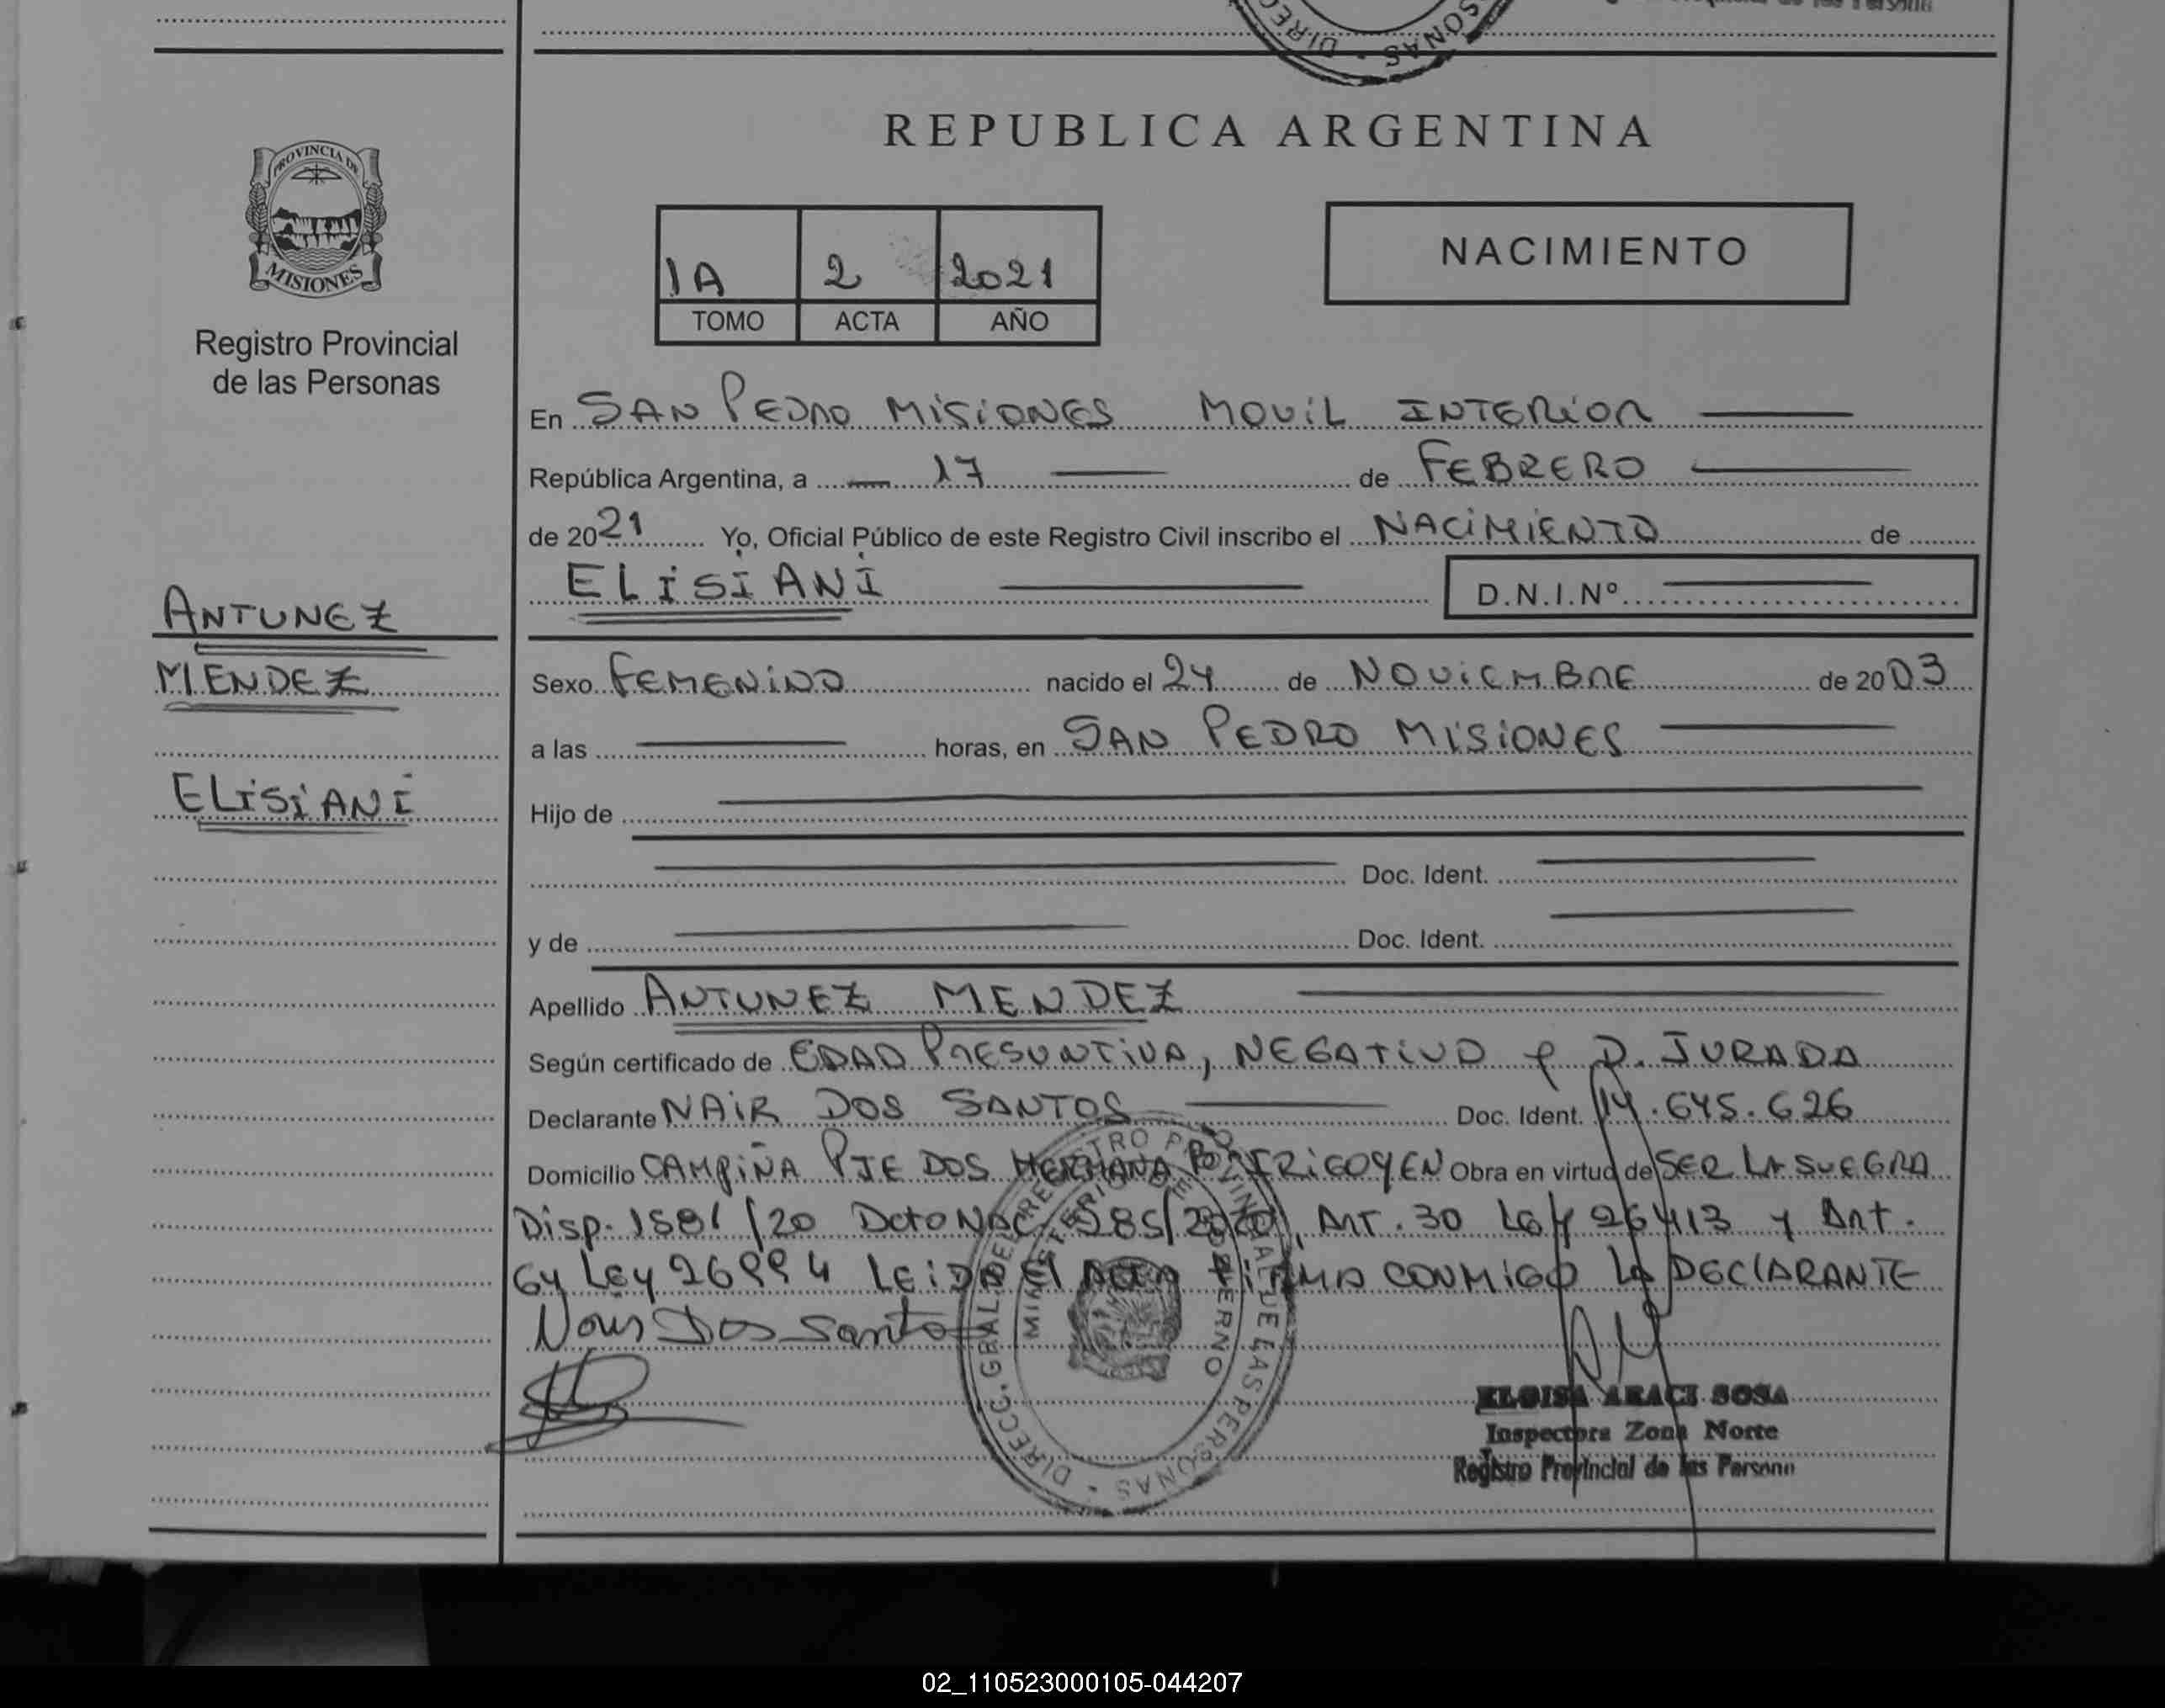 REPUBLICA ARGENTINA
PROVINCIA DE
MISIONES
Registro Provincial
de las Personas
1A 2 2021
TOMO ACTA AÑO
NACIMIENTO
En SAN PEDRO MISIONES MOVIL INTERIOR
República Argentina, a 17 de FEBRERO
de 2021 Yo, Oficial Público de este Registro Civil inscribo el NACIMIENTO de
ELISIANI D.N.I.Nº
ANTUNEZ
MENDEZ
ELISIANI
Sexo FEMENINO nacido el 24 de NOVIEMBRE de 2003
a las horas, en SAN PEDRO MISIONES
Hijo de
Doc. Ident.
y de Doc. Ident.
Apellido ANTUNEZ MENDEZ
Según certificado de EDAD PRESUNTIVA, NEGATIVO y D. JURADA
Declarante NAIR DOS SANTOS Doc. Ident. 14.645.626
Domicilio CAMPIÑA PJE DOS HERMANA IRIGOYEN Obra en virtud de SER LA SUEGRA
Disp. 1581/20 Dcto NAC 585/2020, ART. 30 LEY 26413 y Art.
64 LEY 26994 LEIDA El ACTA FIRMA CONMIGO LA DECLARANTE
Dos Santo
DIRECC. GRAL. DEL REGISTRO PROVINCIAL DE LAS PERSONAS
MINISTERIO DE GOBIERNO
ELOISA ARACI SOSA
Inspectora Zona Norte
Registro Provincial de las Persona
02_110523000105-044207